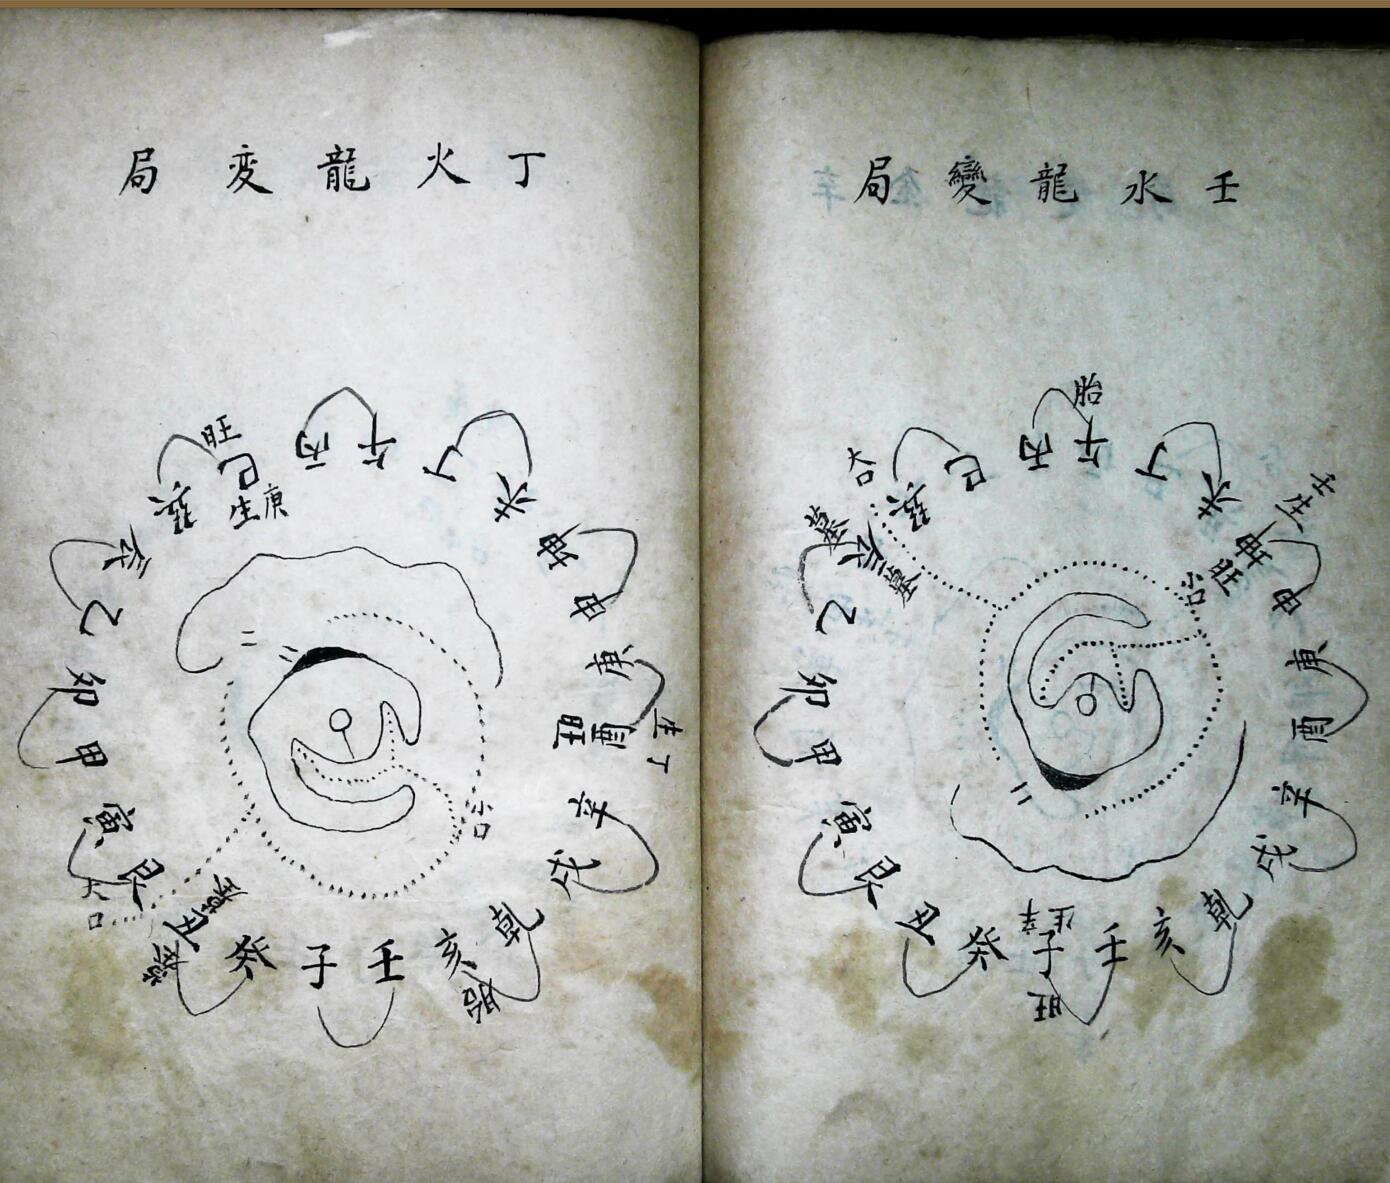 壬水龍變局
胎
午
丙
巳
巽
大口
墓
辰
墓
乙
卯
甲
寅
艮
丑
癸
子
旺
辛生
壬
亥
乾
戌
辛
酉
庚
申
坤
旺
壬生
小口
未
丁
二
丁火龍変局
午
丙
旺
巳
庚生
巽
辰
乙
卯
甲
寅
艮
大口
丑
癸
子
壬
亥
胎
乾
戌
辛
酉
旺
丁生
庚
申
坤
未
丁
小口
二
二